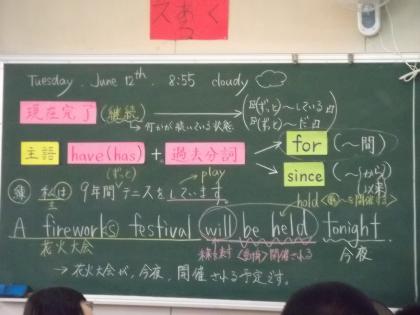 Tuesday, June 12th, 8:55 cloudy
現在完了 (継続) (ずっと)〜している
(ずっと)〜だ
何かが続いている状態
主語 have(has) + 過去分詞
for (〜間)
since (〜から)
以来
(ずっと) play
私は 9年間テニスをしています。
主
hold <動>〜を開催する
A fireworks festival will be held tonight.
花火大会 未来を表す <受動>開催される 今夜
→ 花火大会が、今夜、開催される予定です。